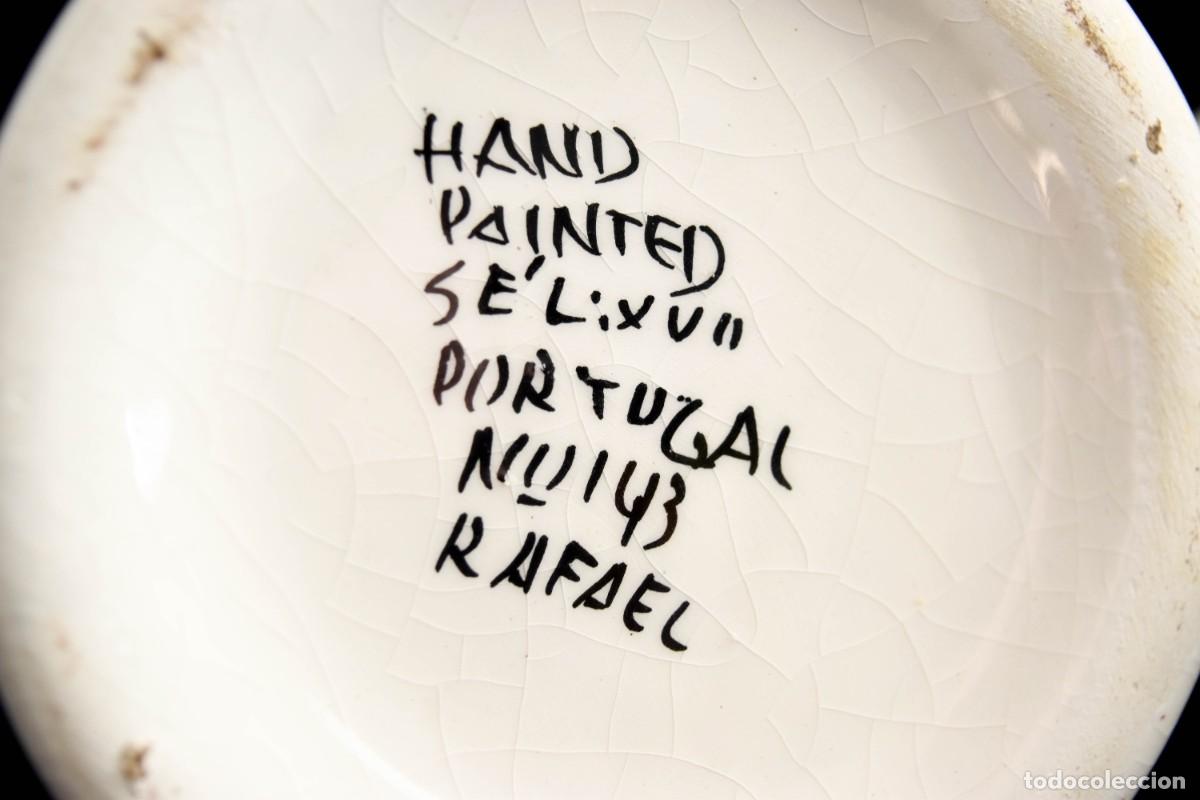 HAND
PAINTED
SÉL:XVII
PORTUGAL
Nº 143
RAFAEL
todocoleccion